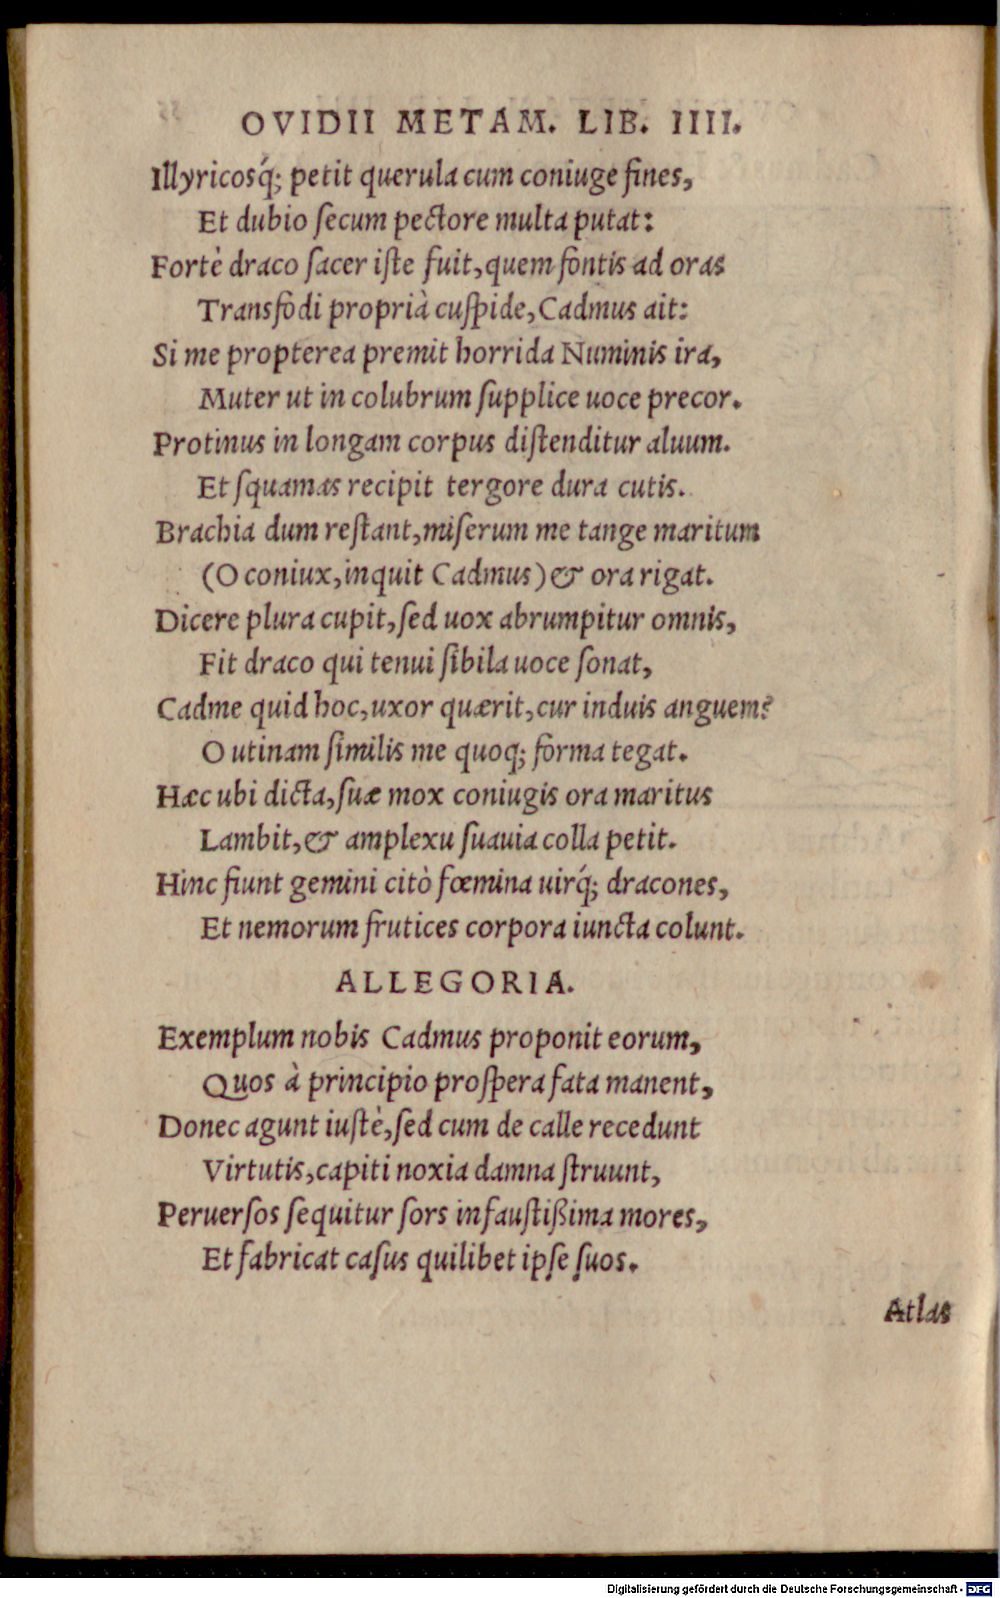 OVIDII METAM. LIB. IIII.
Illyricosq́; petit querula cum coniuge fines,
Et dubio ſecum pectore multa putat:
Fortè draco ſacer iſte fuit, quem fontis ad oras
Transfodi proprià cuſpide, Cadmus ait:
Si me propterea premit horrida Numinis ira,
Muter ut in colubrum ſupplice uoce precor.
Protinus in longam corpus diſtenditur aluum.
Et ſquamas recipit tergore dura cutis.
Brachia dum reſtant, miſerum me tange maritum
(O coniux, inquit Cadmus) & ora rigat.
Dicere plura cupit, ſed uox abrumpitur omnis,
Fit draco qui tenui ſibila uoce ſonat,
Cadme quid hoc, uxor quærit, cur induis anguem?
O utinam ſimilis me quoq; forma tegat.
Hæc ubi dicta, ſuæ mox coniugis ora maritus
Lambit, & amplexu ſuauia colla petit.
Hinc fiunt gemini citò fœmina uirq́; dracones,
Et nemorum frutices corpora iuncta colunt.
ALLEGORIA.
Exemplum nobis Cadmus proponit eorum,
Quos à principio proſpera fata manent,
Donec agunt iuſtè, ſed cum de calle recedunt
Virtutis, capiti noxia damna ſtruunt,
Peruerſos ſequitur ſors infauſtißima mores,
Et fabricat caſus quilibet ipſe ſuos.
Atlas
Digitalisierung gefördert durch die Deutsche Forschungsgemeinschaft - DFG